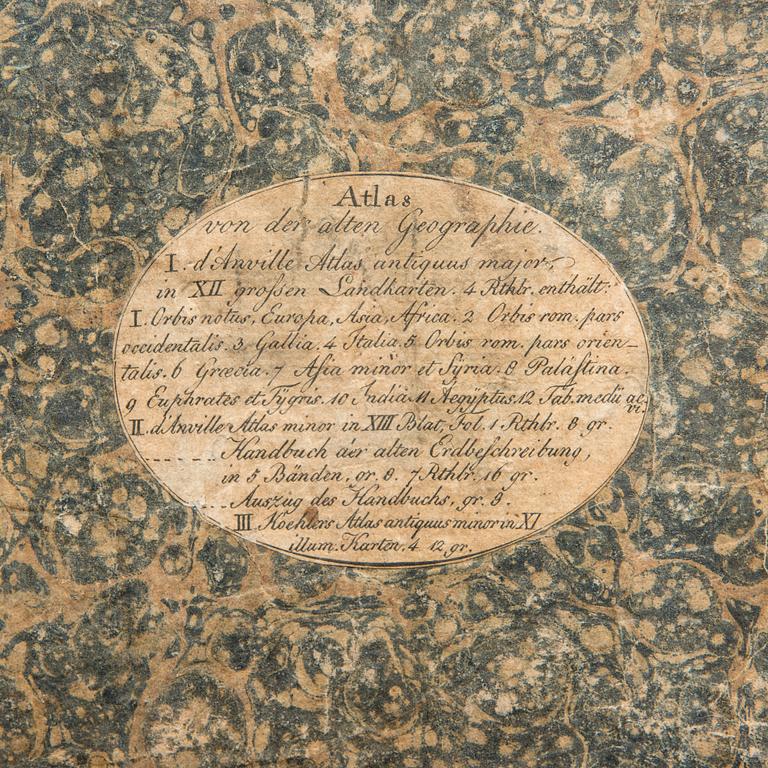 Atlas
von der alten Geographie.
I. d'Anville Atlas antiquus major,
in XII großen Landkarten. 4 Rthlr. enthält:
I. Orbis notus, Europa, Asia, Africa. 2 Orbis rom. pars
occidentalis. 3 Gallia. 4 Italia. 5 Orbis rom. pars orien-
talis. 6 Græcia. 7 Asia minor et Syria. 8 Paläſtina.
9 Euphrates et Tygris. 10 India. 11 Aegÿptus. 12 Tab. medii ae-
vi.
II. d'Anville Atlas minor in XIII Blat, Fol. 1 Rthlr. 8 gr.
---- Handbuch der alten Erdbeſchreibung,
in 5 Bänden, gr. 8. 7 Rthlr. 16 gr.
---- Auszug des Handbuchs, gr. 8
III. Koehlers Atlas antiquus minor in XV
illum. Karten. 4 12 gr.